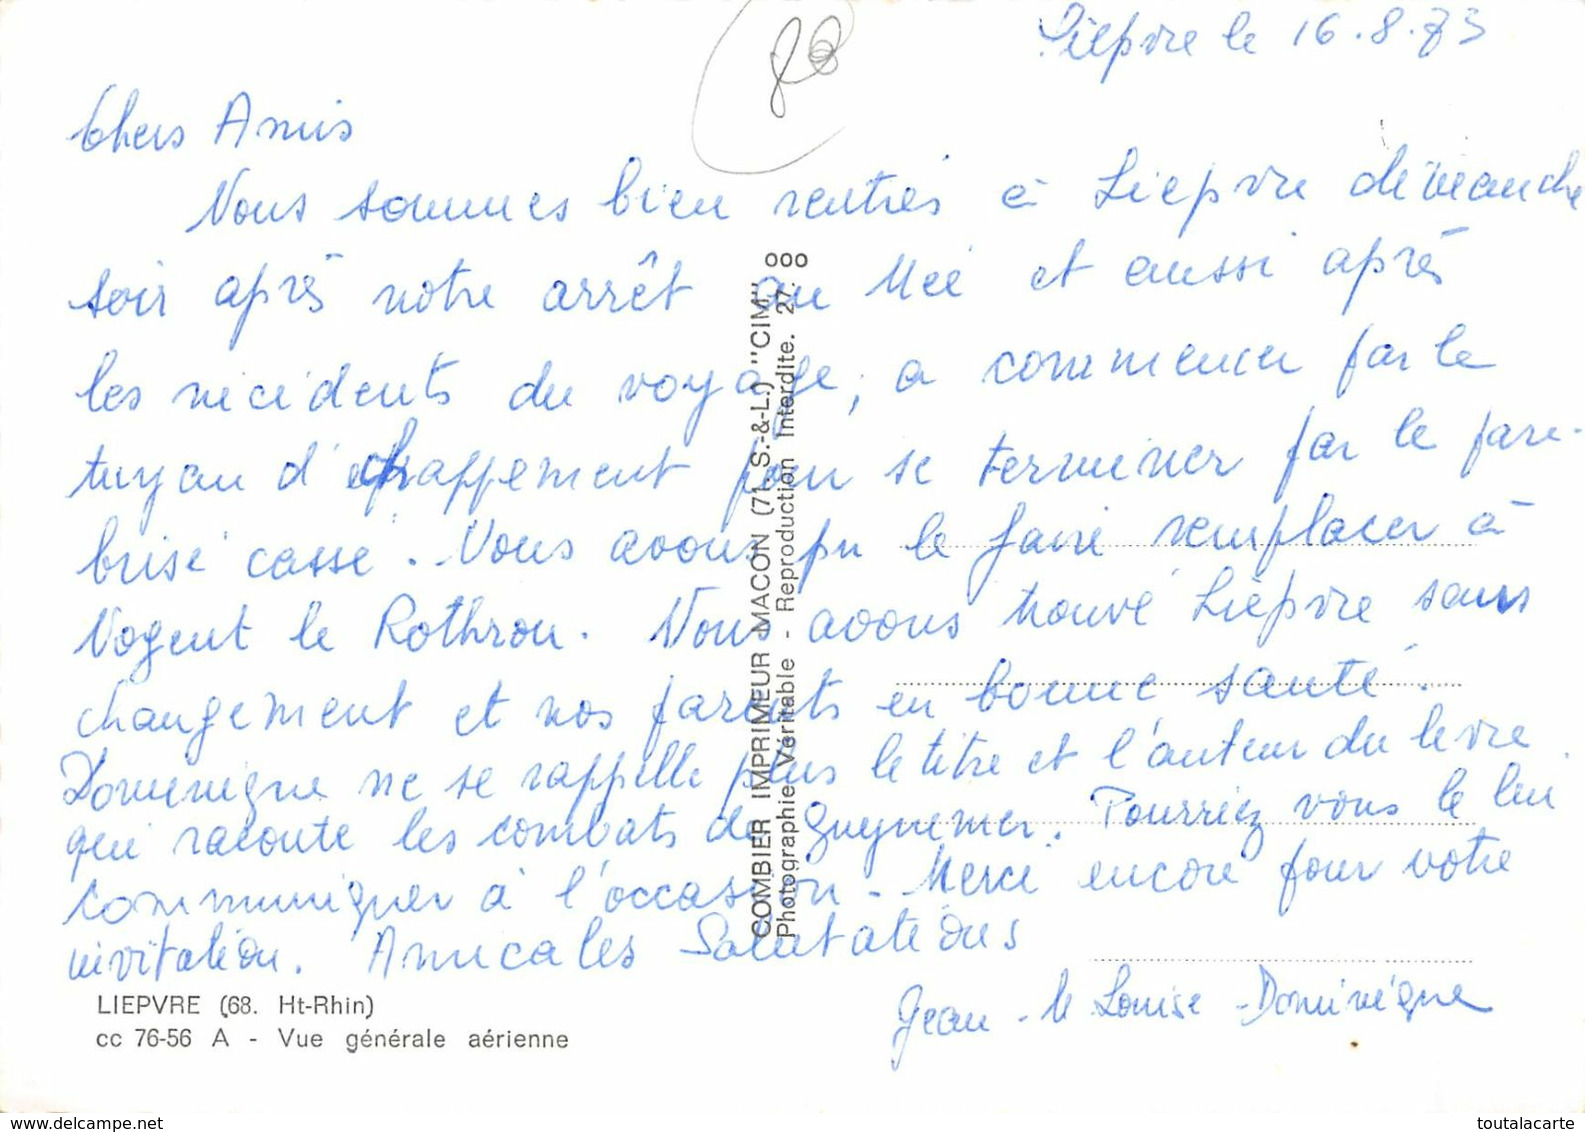 Lièpvre le 16.8.73
68
Chers Amis
Nous sommes bien rentrés à Lièpvre dimanche
soir après notre arrêt au Mée et aussi après
les incidents du voyage, a commencer par le
tuyau d'echappement pour se terminer par le pare-
brise cassé. Nous avons pu le faire remplacer à
Nogent le Rothrou. Nous avons trouvé Lièpvre sans
changement et nos parents en bonne santé.
Dominique ne se rappelle plus le titre et l'auteur du livre
qui raconte les combats de guynemer. Pourriez vous le lui
communiquer à l'occasion - Merci encore pour votre
invitation. Amicales Salutations
Jean - Louise - Dominique
COMBIER IMPRIMEUR MACON (71. S.-&-L.) "CIM"
Photographie Véritable - Reproduction Interdite. 27. 000
LIEPVRE (68. Ht-Rhin)
cc 76-56 A - Vue générale aérienne
www.delcampe.net
toutalacarte